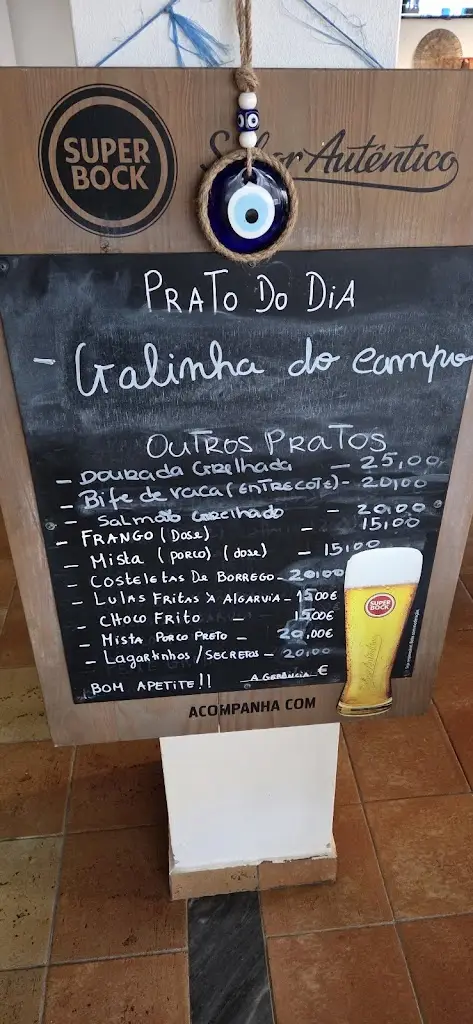 SUPER
BOCK
Sabor Autêntico
PRATO DO DIA
- Galinha do campo
OUTROS PRATOS
- DOURADA GRELHADA - 25,00
- Bife de vaca (ENTRECOTE) - 20,00
- SALMÃO GRELHADO - 20,00
- FRANGO (DOSE) - 15,00
- Mista (PORCO) (dose) - 15,00
- COSTELETAS DE BORREGO - 20,00
- LULAS FRITAS À ALGARVIA - 15,00€
- CHOCO FRITO - 15,00€
- MISTA PORCO PRETO - 20,00€
- LAGARTINHOS / SECRETOS - 20,00
BOM APETITE!! A GERÊNCIA €
SUPER
BOCK
ACOMPANHA COM